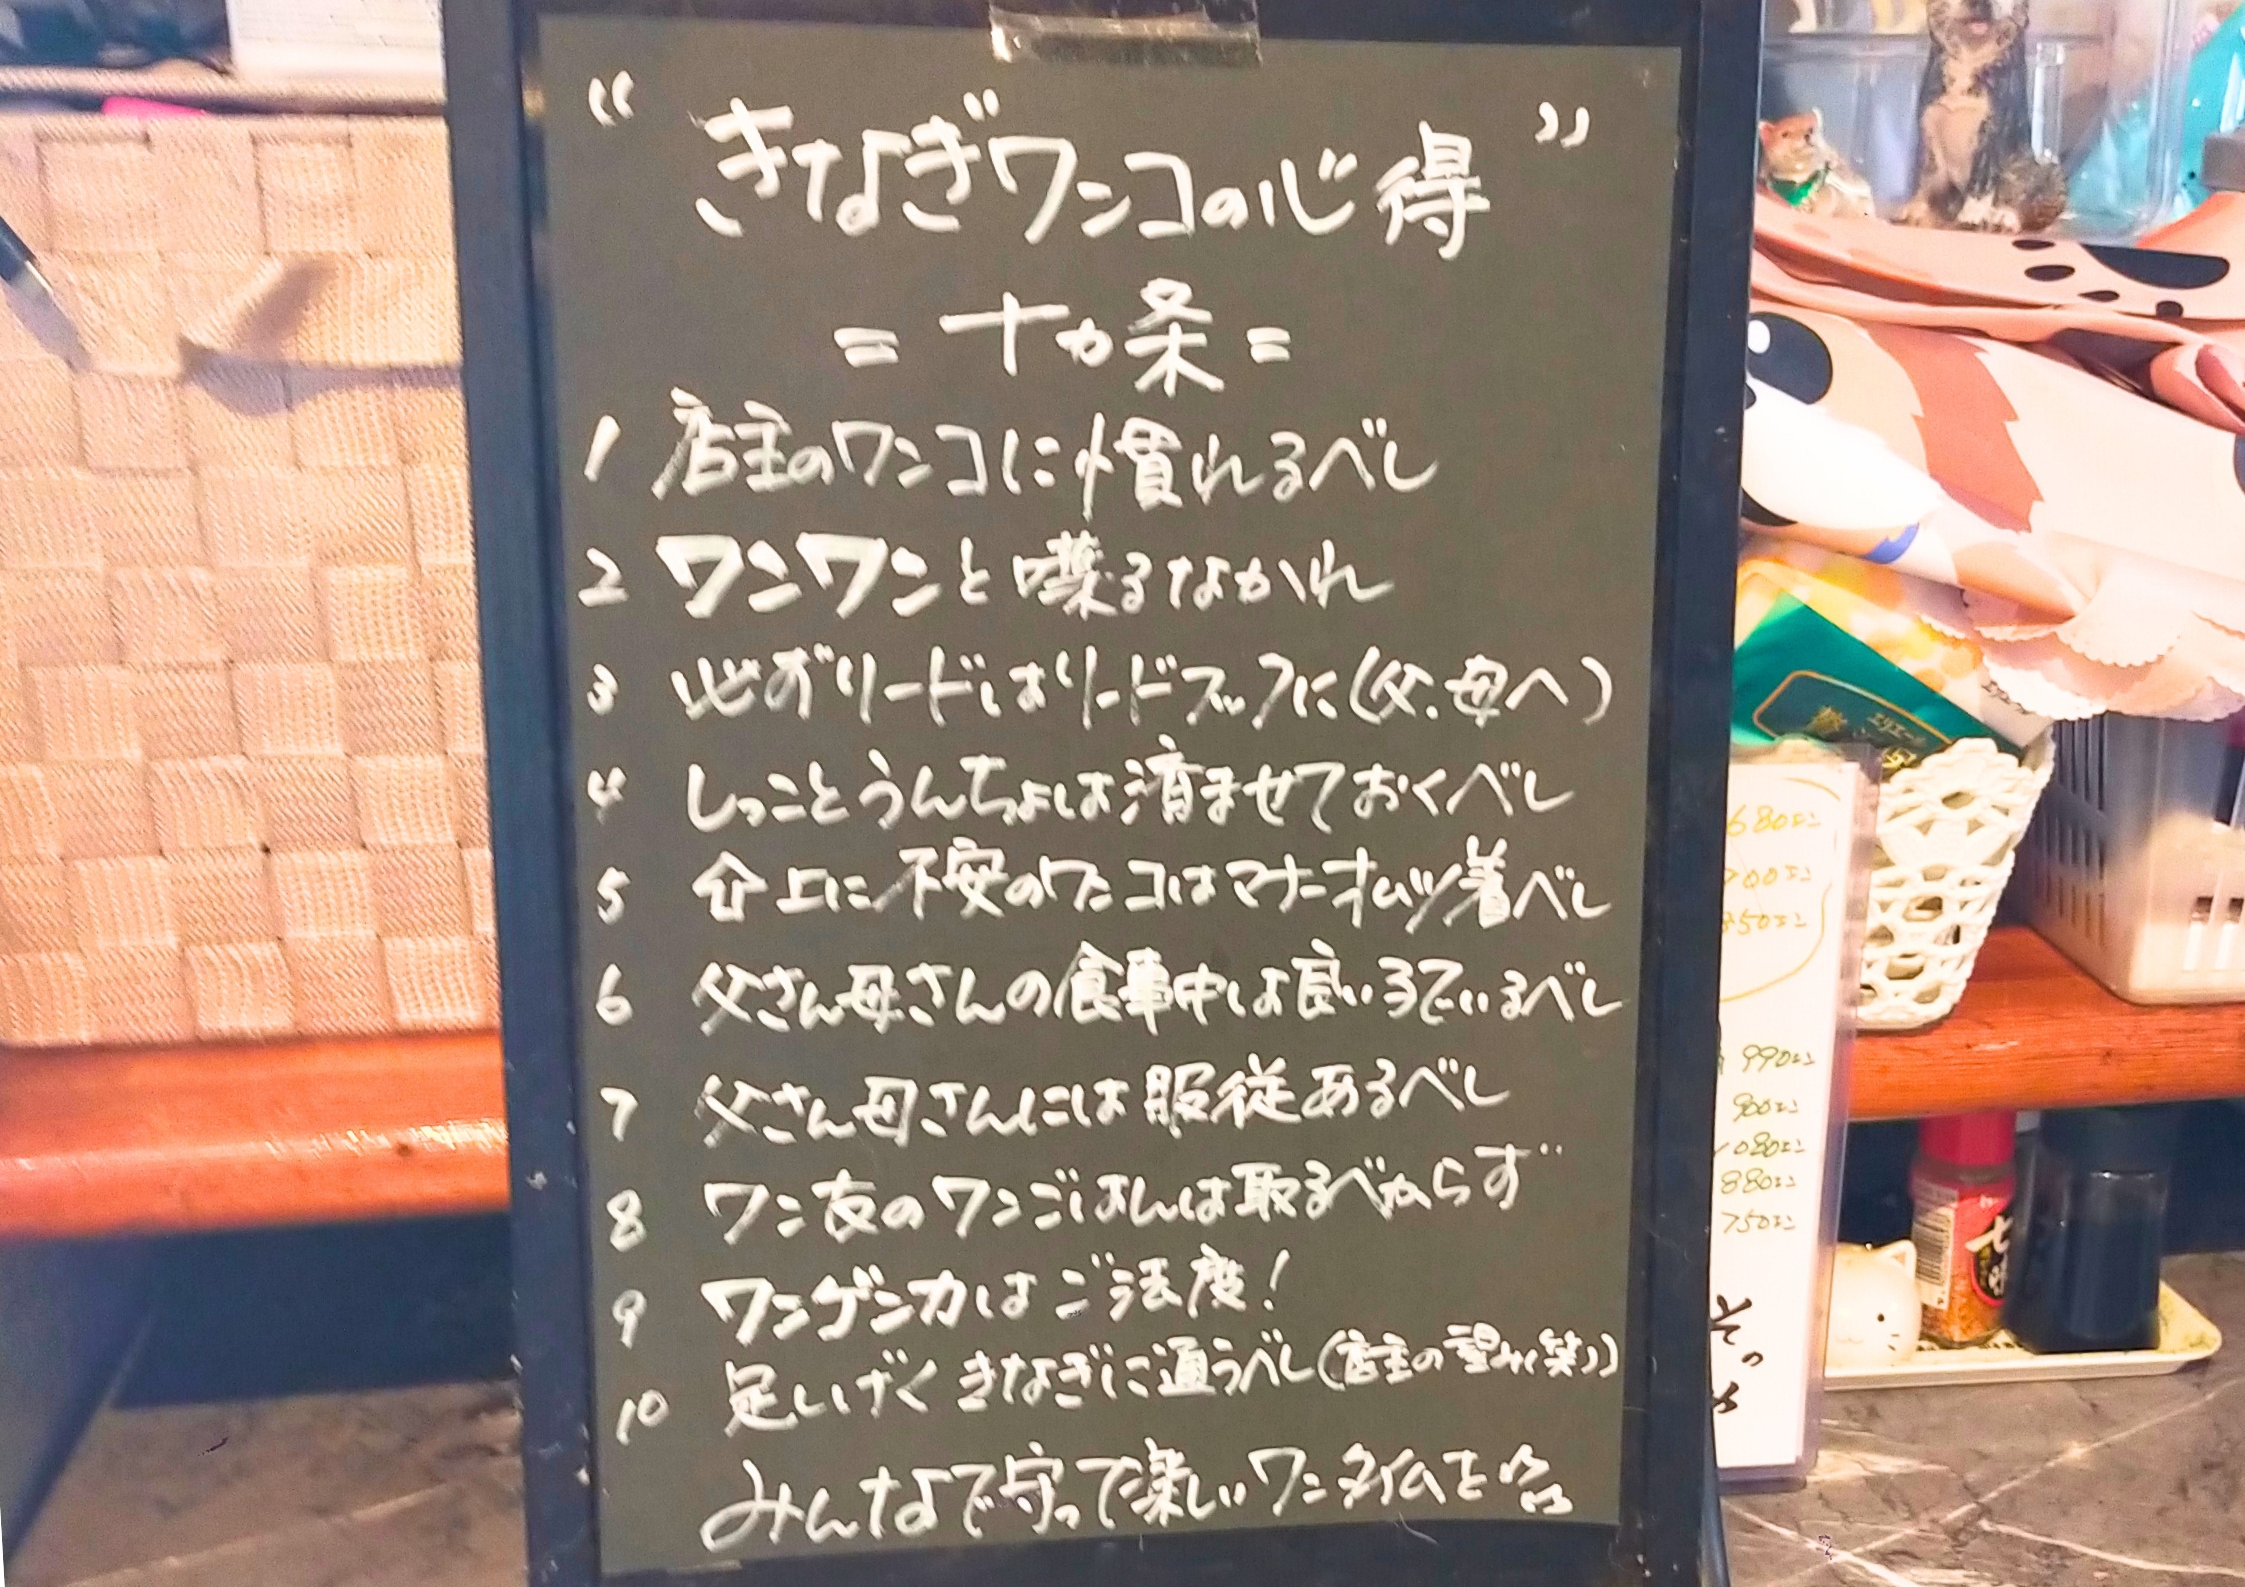 “きなぎワンコの心得”
=十カ条=
1 店主のワンコに慣れるべし
2 ワンワンと喋るなかれ
3 必ずリードはリードフックに(父、母へ)
4 しっことうんちょは済ませておくべし
5 介上に不安のワンコはマナーオムツ着べし
6 父さん母さんの食事中は良い子でいるべし
7 父さん母さんには服従あるべし
8 ワン友のワンごはんは取るべからず
9 ワンゲンカはご法度!
10 足しげくきなぎに通うべし(店主の望み(笑))
みんなで守って楽しいワンタイムを
680エン
700エン
850エン
990エン
900エン
1080エン
880エン
750エン
エリエール